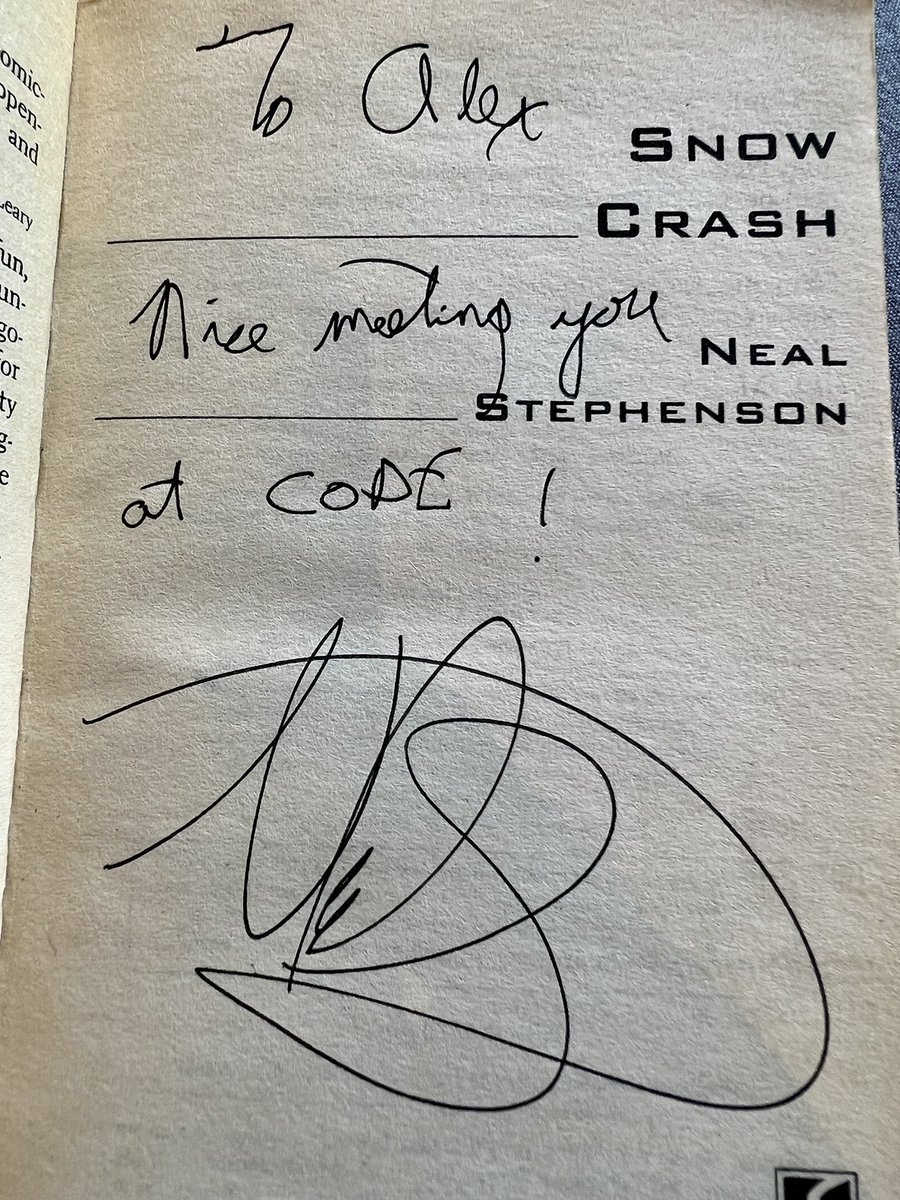 omic-
open-
and
Leary
fun,
un-
go-
for
ty
g-
e
To Alex
SNOW
CRASH
Nice meeting you
NEAL
STEPHENSON
at CODE !